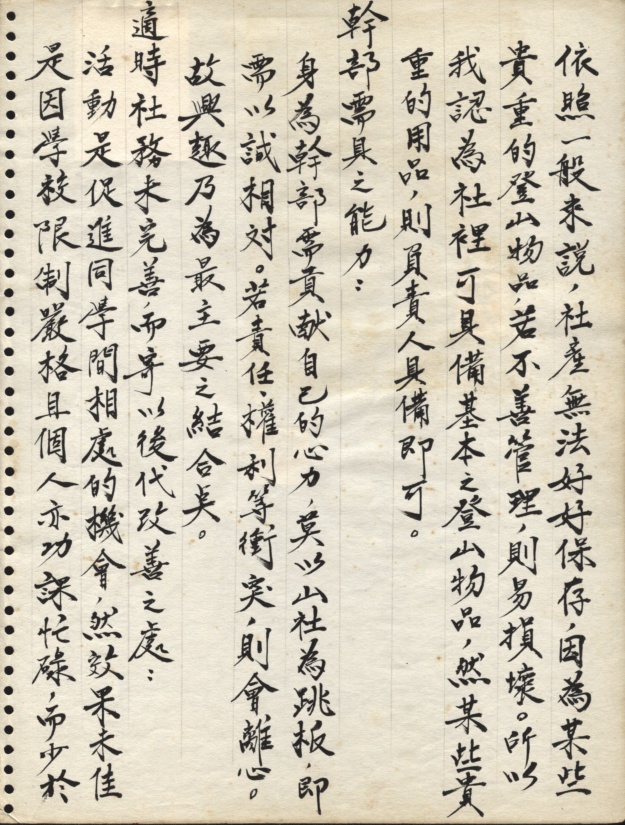 依照一般來說，社產無法好好保存，因為某些
貴重的登山物品，若不善管理，則易損壞。所以
我認為社裡可具備基本之登山物品，然某些貴
重的用品，則負責人具備即可。
幹部需具之能力：
身為幹部需貢献自己的心力，莫以山社為跳板，即
需以誠相対。若責任、權利等衝突，則會離心。
故興趣乃為最主要之結合点。
適時社務未完善，而寄以後代改善之處：
活動是促進同學間相處的機會，然效果未佳
是因學校限制嚴格且個人亦功課忙碌，而少於